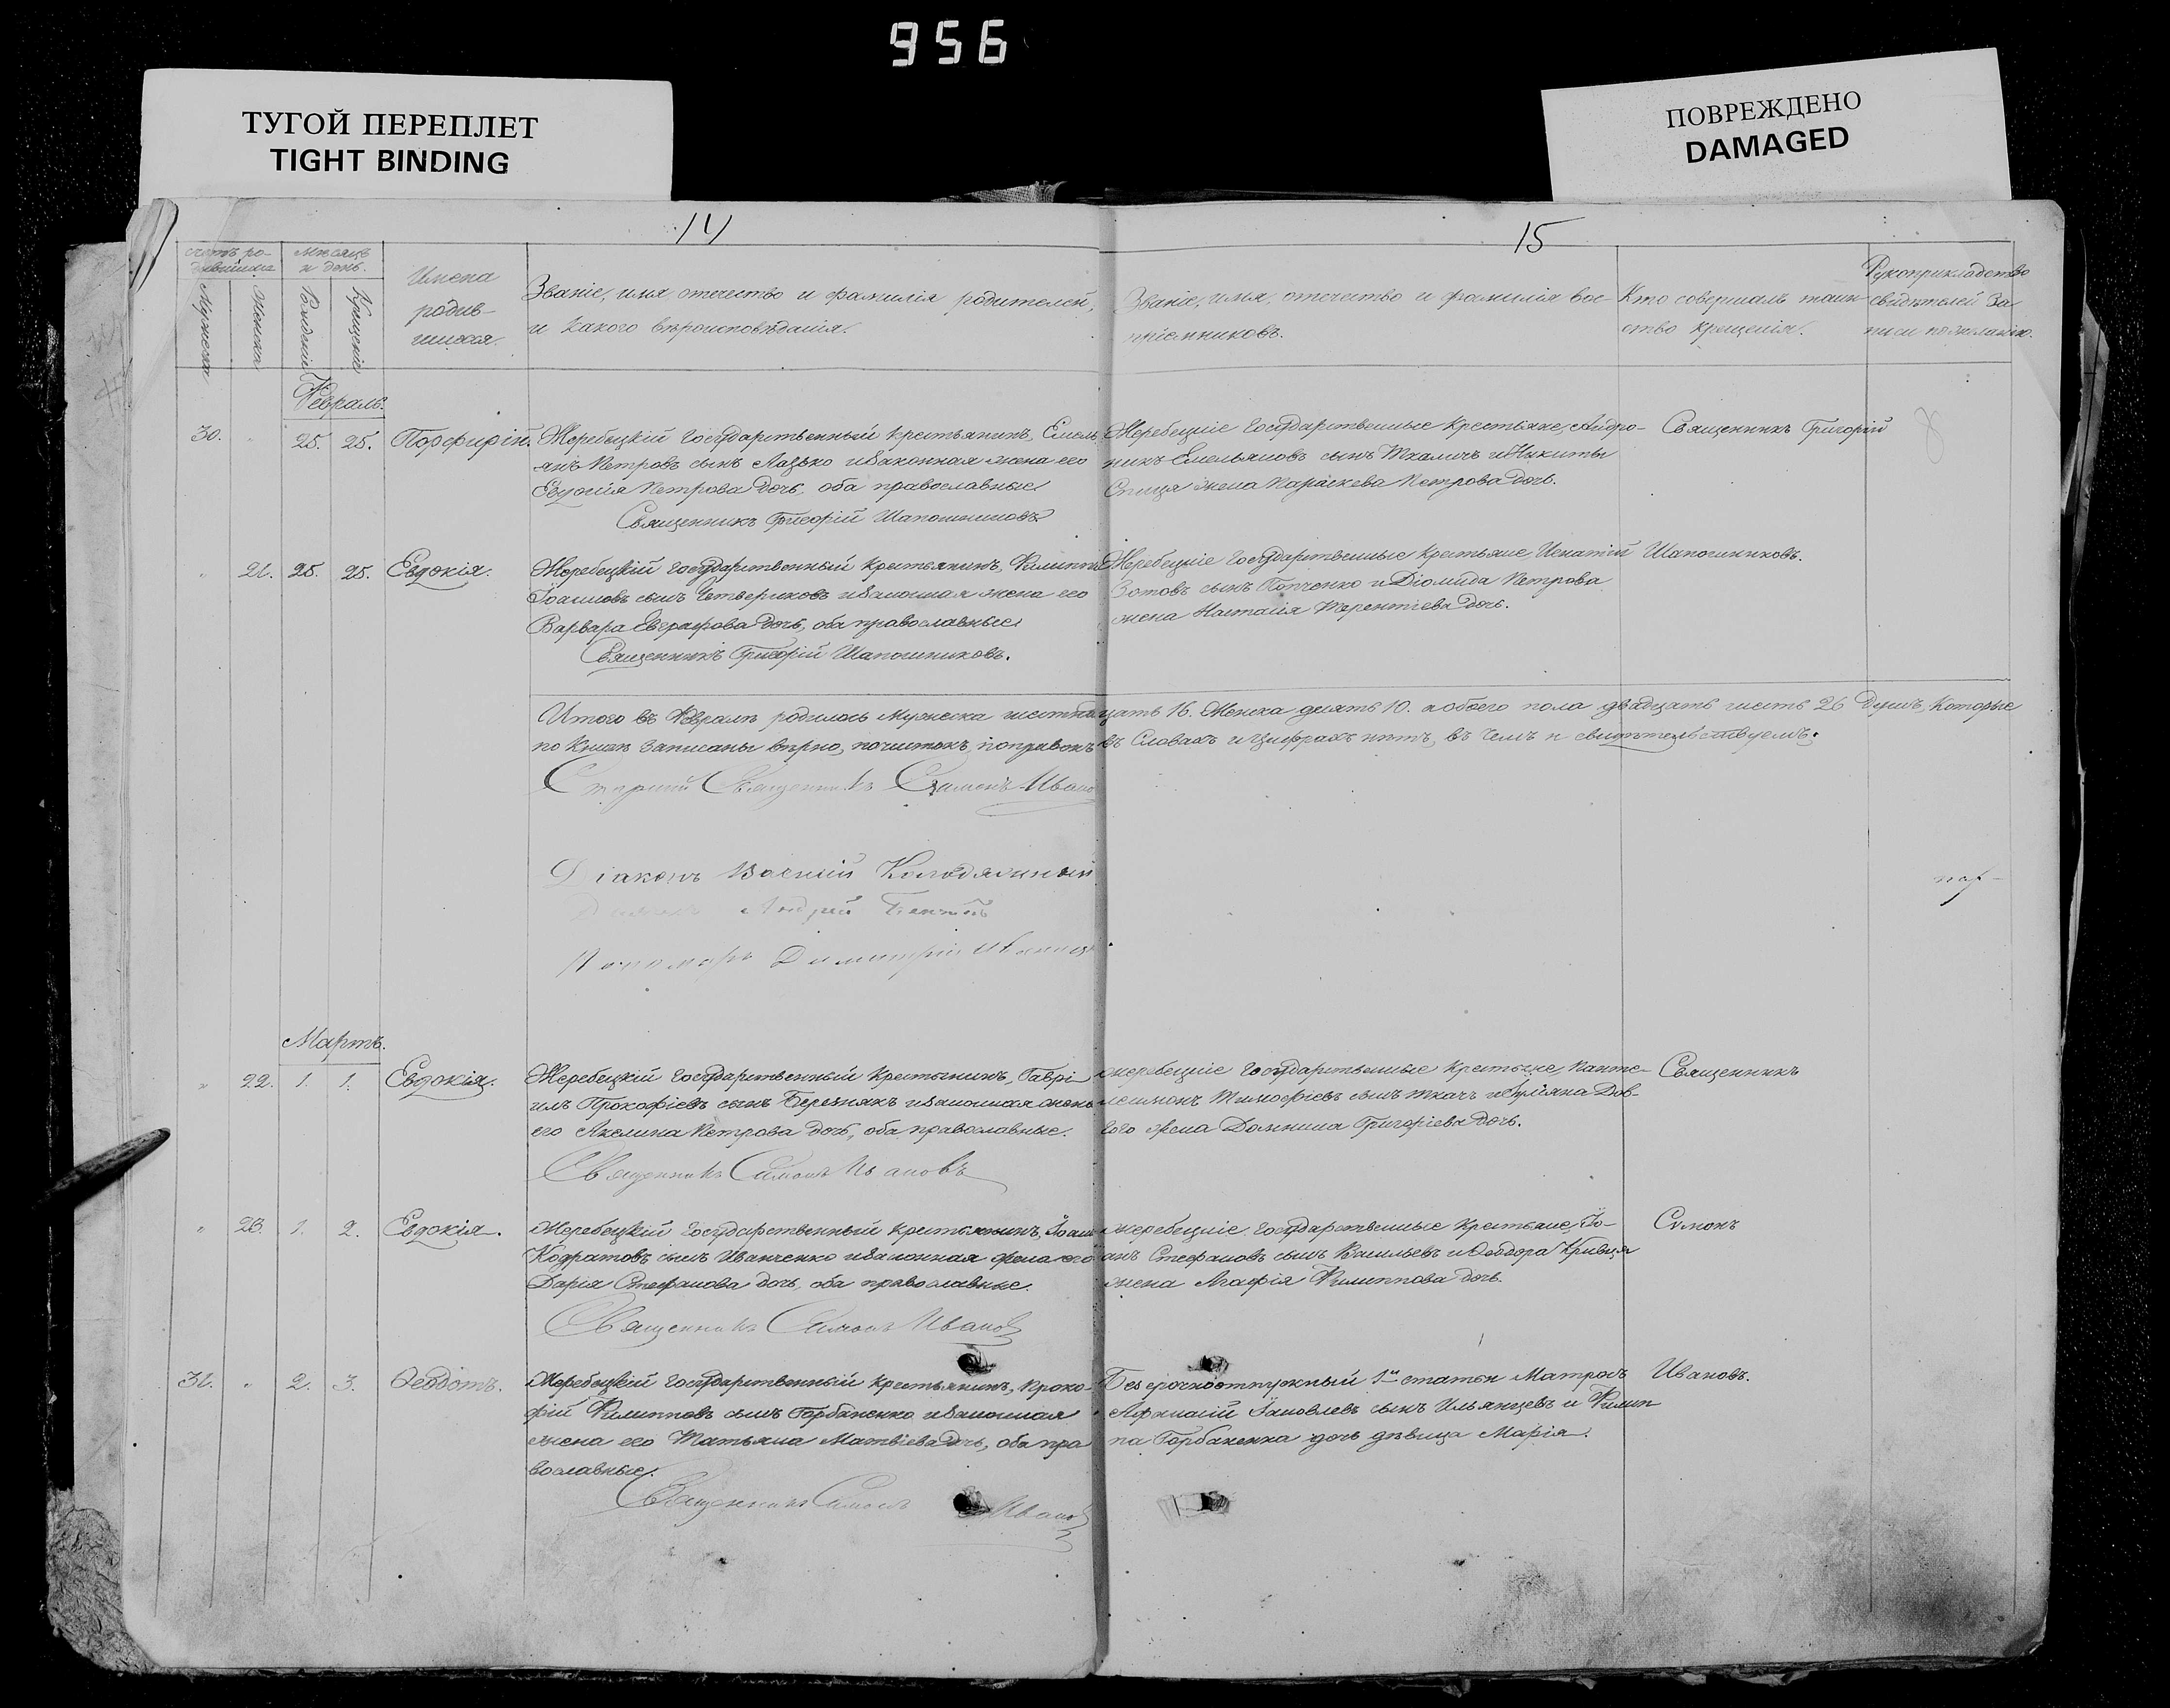 956
ТУГОЙ ПЕРЕПЛЕТ
TIGHT BINDING
ПОВРЕЖДЕНО
DAMAGED
14
15
Счетъ ро-
дившихся
Мѣсяцъ
и день.
Мужеска
Женска
Рожденія
Крещенія
Имена
родив-
шихся.
Званіе, имя, отечество и фамилія родителей,
и какого вѣроисповѣданія.
Званіе, имя, отечество и фамилія вос-
пріемниковъ.
Кто совершалъ таин-
ство крещенія.
Рукоприкладство
свидѣтелей за-
писи по желанію.
Февраль.
30. " 25. 25. Порфирій.
Жеребецкій Государственный крестьянинъ, Емель
янъ Петровъ сынъ Лазько и законная жена его
Евдокія Петрова дочь, оба православные.
Священникъ Григорій Шапошниковъ
Жеребецкіе Государственные крестьяне, Андро-
никъ Емельяновъ сынъ Ткаличъ и Никиты
Спиця жена Параскева Петрова дочь.
Священникъ Григорій
" 21. 25. 25. Евдокія.
Жеребецкій государственный крестьянинъ, Филиппъ
Іоанновъ сынъ Четвериковъ и законная жена его
Варвара Евграфова дочь, оба православные.
Священникъ Григорій Шапошниковъ.
Жеребецкіе государственные крестьяне Игнатій
Зотовъ сынъ Попченко и Діомида Петрова
жена Наталія Терентіева дочь.
Шапошниковъ.
Итого въ Февралѣ родилось мужеска шестнадцать 16. Женска десять 10. а обоего пола двадцать шесть 26 душъ, которые
по книгѣ записаны вѣрно, почистокъ, поправокъ въ словахъ и цифрахъ нѣтъ, въ чемъ и свидѣтельствуемъ.
Старшій Священникъ Симонъ Ивано
Діаконъ Василій Колодяжный
Андрей
Пономарь Димитрій
Мартъ.
" 22. 1. 1. Евдокія.
Жеребецкій Государственный крестьянинъ, Гаврі
илъ Прокофіевъ сынъ Березнякъ и законная жена
его Акелина Петрова дочь, оба православные.
Священникъ Симонъ Ивановъ
жеребецкіе государственные крестьяне, Панте-
леимонъ Тимофіевъ сынъ Ткачъ и Ѵліяна Дов-
гого жена Домнина Григоріева дочь.
Священникъ
" 23. 1. 2. Евдокія.
Жеребецкій Государственный крестьянинъ, Іоан
Кодратовъ сынъ Иванченко и законная жена его
Дарія Стефанова дочь, оба православные.
Священникъ Симонъ Ивано
жеребецкіе государственные крестьяне, Іо-
анъ Стефановъ сынъ Васильевъ и Ѳеодора Кривця
жена Агафія Филиппова дочь.
Симонъ
31. " 2. 3. Ѳеодотъ.
Жеребецкій Государственный крестьянинъ, Проко-
фій Филипповъ сынъ Горбаненко и законная
жена его Татьяна Матвіева дочь, оба пра
вославные.
Священникъ Симонъ Ивано
Безсрочноотпускный 1й статьи Матросъ
Афанасій Іаковлевъ сынъ Ильянцевъ и Филип
па Горбаненка дочь дѣвица Марія.
Ивановъ.